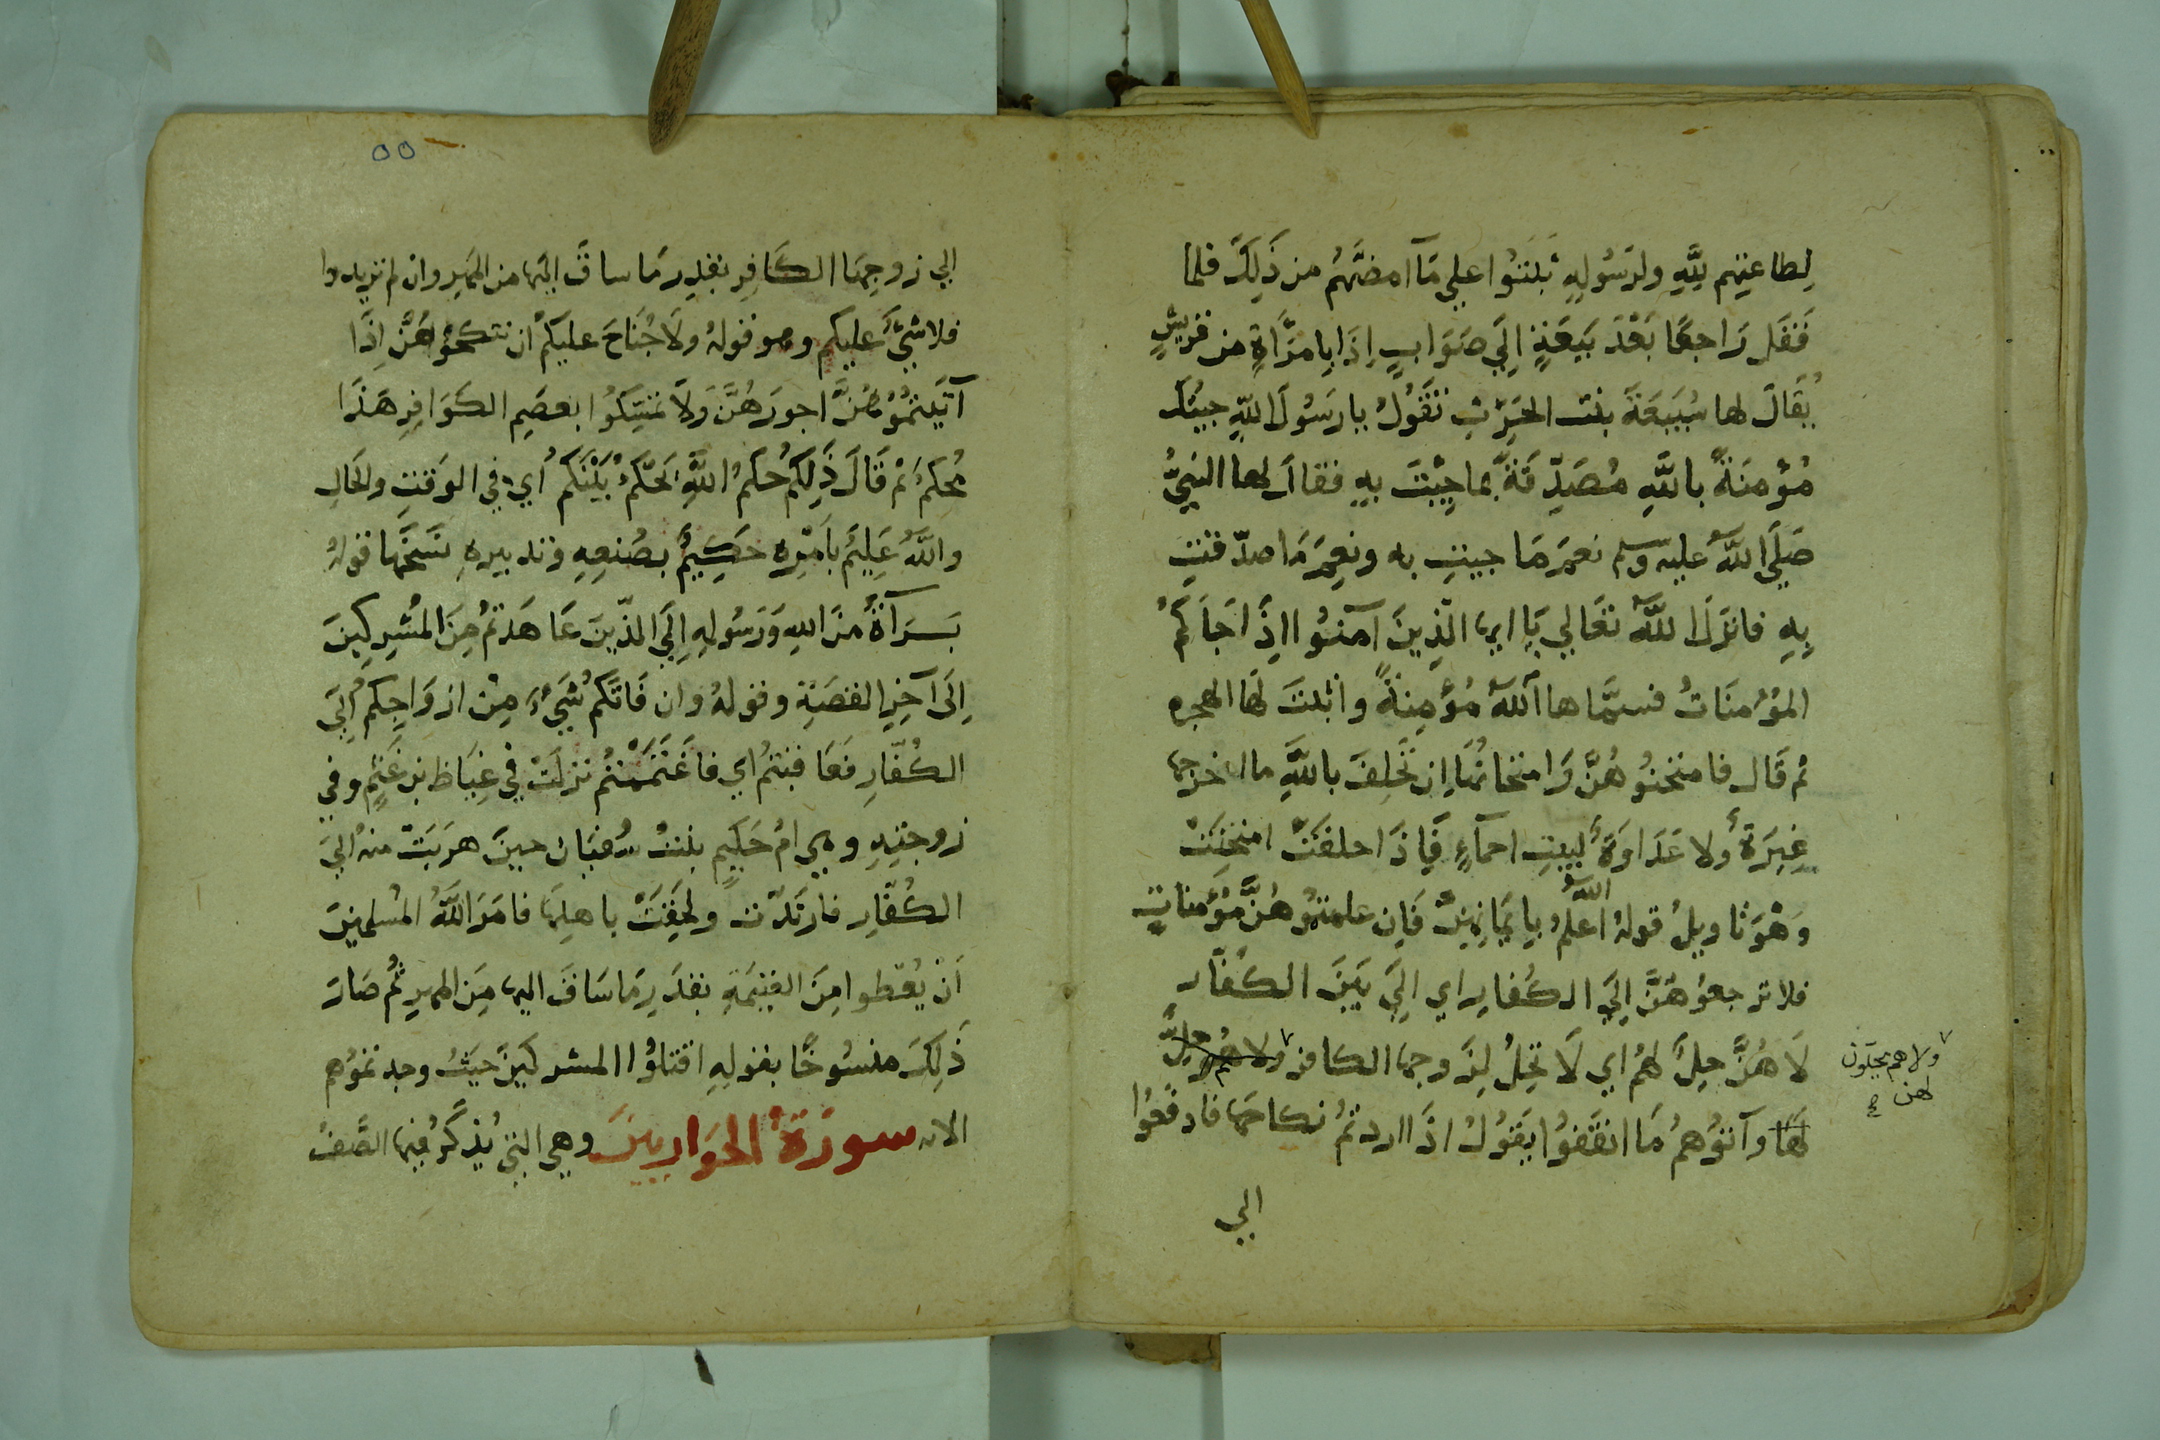 لِطاعتِهم لِلّهِ ولرَسُولِهِ ثَبتُوا علي مَآ امضَّهُم من ذَلِكَ فلما
قَفَل رَاجعًا بَعْدَ بَيعَةٍ إلَي صَوَابٍ إذَا بامرَّاةٍ من قريشٍ
يُقَالُ لها سُبَيعَةَ بنت الحَرِثِ تَقُولُ يارَسُولَ اللّهِ جيتُكَ
مُؤْمنَةً باللَّهِ مُصَدِّقَةً بما جِيْتَ بهِ فقال لها النبيُّ
صَلَّي اللَّهُ عليه وسلم نعمَ مَا جيتِ به ونعِمَ مَا صدّقتِ
بِهِ فانزَلَ اللَّهُ تعَالي يَاايها الّذِينَ آمنُوا اذَِا جَاكَمُ
المُؤْمنَاتُ فسمَّاها اللهُ مُؤمِنةً واثبتَ لهَا الهجره
ثم قَال فامتحنُوهُنَّ وَامتحانُهَا ان تَحلِفَ باللَّهِ ما اخرجها
غِيرَةٌ ولا عَدَاوَةٌ لبيتِ احمآءٍ فَاِذَا حلفَتْ امتُحنَتْ
وَهْوَ تاويلُ قولهُ اللهُ اعلمُ بِايمَانِهِنَّ فَاِن علمتمُوهُنَّ مُؤْمناتٍ
فلا ترجعوُهُنَّ اِلَي الكُفارِ اي اِلَي بَيَنَ الكُفَّار
لَا هُنَّ حِلٌّ لهُم اي لَا تحِلُّ لِزَوجها الكافر ولا هُم حِلٌّ
ولا هم يحلّون
لهن صح
لهَا وآتوُهمُ مَا انفَقوُا يقَوُلُ اذَا اردتمُ نكاحَها فادفعُوا
الي
٥٥
الي زوجِهَا الكَافِر بقدِر مَا ساقَ اليَها من المَهرِ وان لم تريدوا
فلا شيْءَ عليكم وهو قولهُ ولَا جُنَاحَ عليكَمْ ان تنكحُوهُنَّ اِذَا
آتَيتمُوُهُنَّ اجورَهُنَّ وَلَا تمسِكُوا بعصَمِ الكَوَافِرِ هَذَا
مُحكمٌ ثم قَالَ ذَلِكَمُ حُكمُ اللَّهِ يَحْكمُ بَيْنَكُم اي في الوَقتِ والحَالِ
واللَّهُ عَلِيمٌ بامْرِه حَكِيمٌ بصُنعِهِ وتدبيره نسَخَها قولهُ
بَرَآةٌ منَ اللهِ وَرَسُولهِ إِلَي الذّينَ عَاهَدتمُ مِنَ المُشرِكِينَ
اِلَى آخِرِ القصَةِ وقولهُ وان فَاتَكمُ شَيْءٌ مِنْ ازوَاجِكمُ اِلَي
الكُفّارِ فعَاقبتمُ اي فاغَتَنَمْتُمُ نزلَتْ في عِيَاظ بن غَنْمٍ وفي
زوجتِهِ وهي امُ حَكيمٍ بنتُ سُفيَان حينَ هرَبَتْ منهُ اليَ
الكُفّارِ فارتَدّت ولحَِقَتْ باهلِهَا فامَرَ اللَّهُ المُسلمينَ
اَنْ يُعْطوا مِنَ الغنيمَةِ بقدَرِ مَا سَاقَ اليها مِنَ المهرِ ثُم صَارَ
ذَلِكَ منسُوخًا بقولِهِ اقتلوُا المشركَينَ حيَثُ وجدتموُهم
الايه سورَةُ الحَوَاريينَ وهي التي يُذكَرُ فيها الصَّفُ